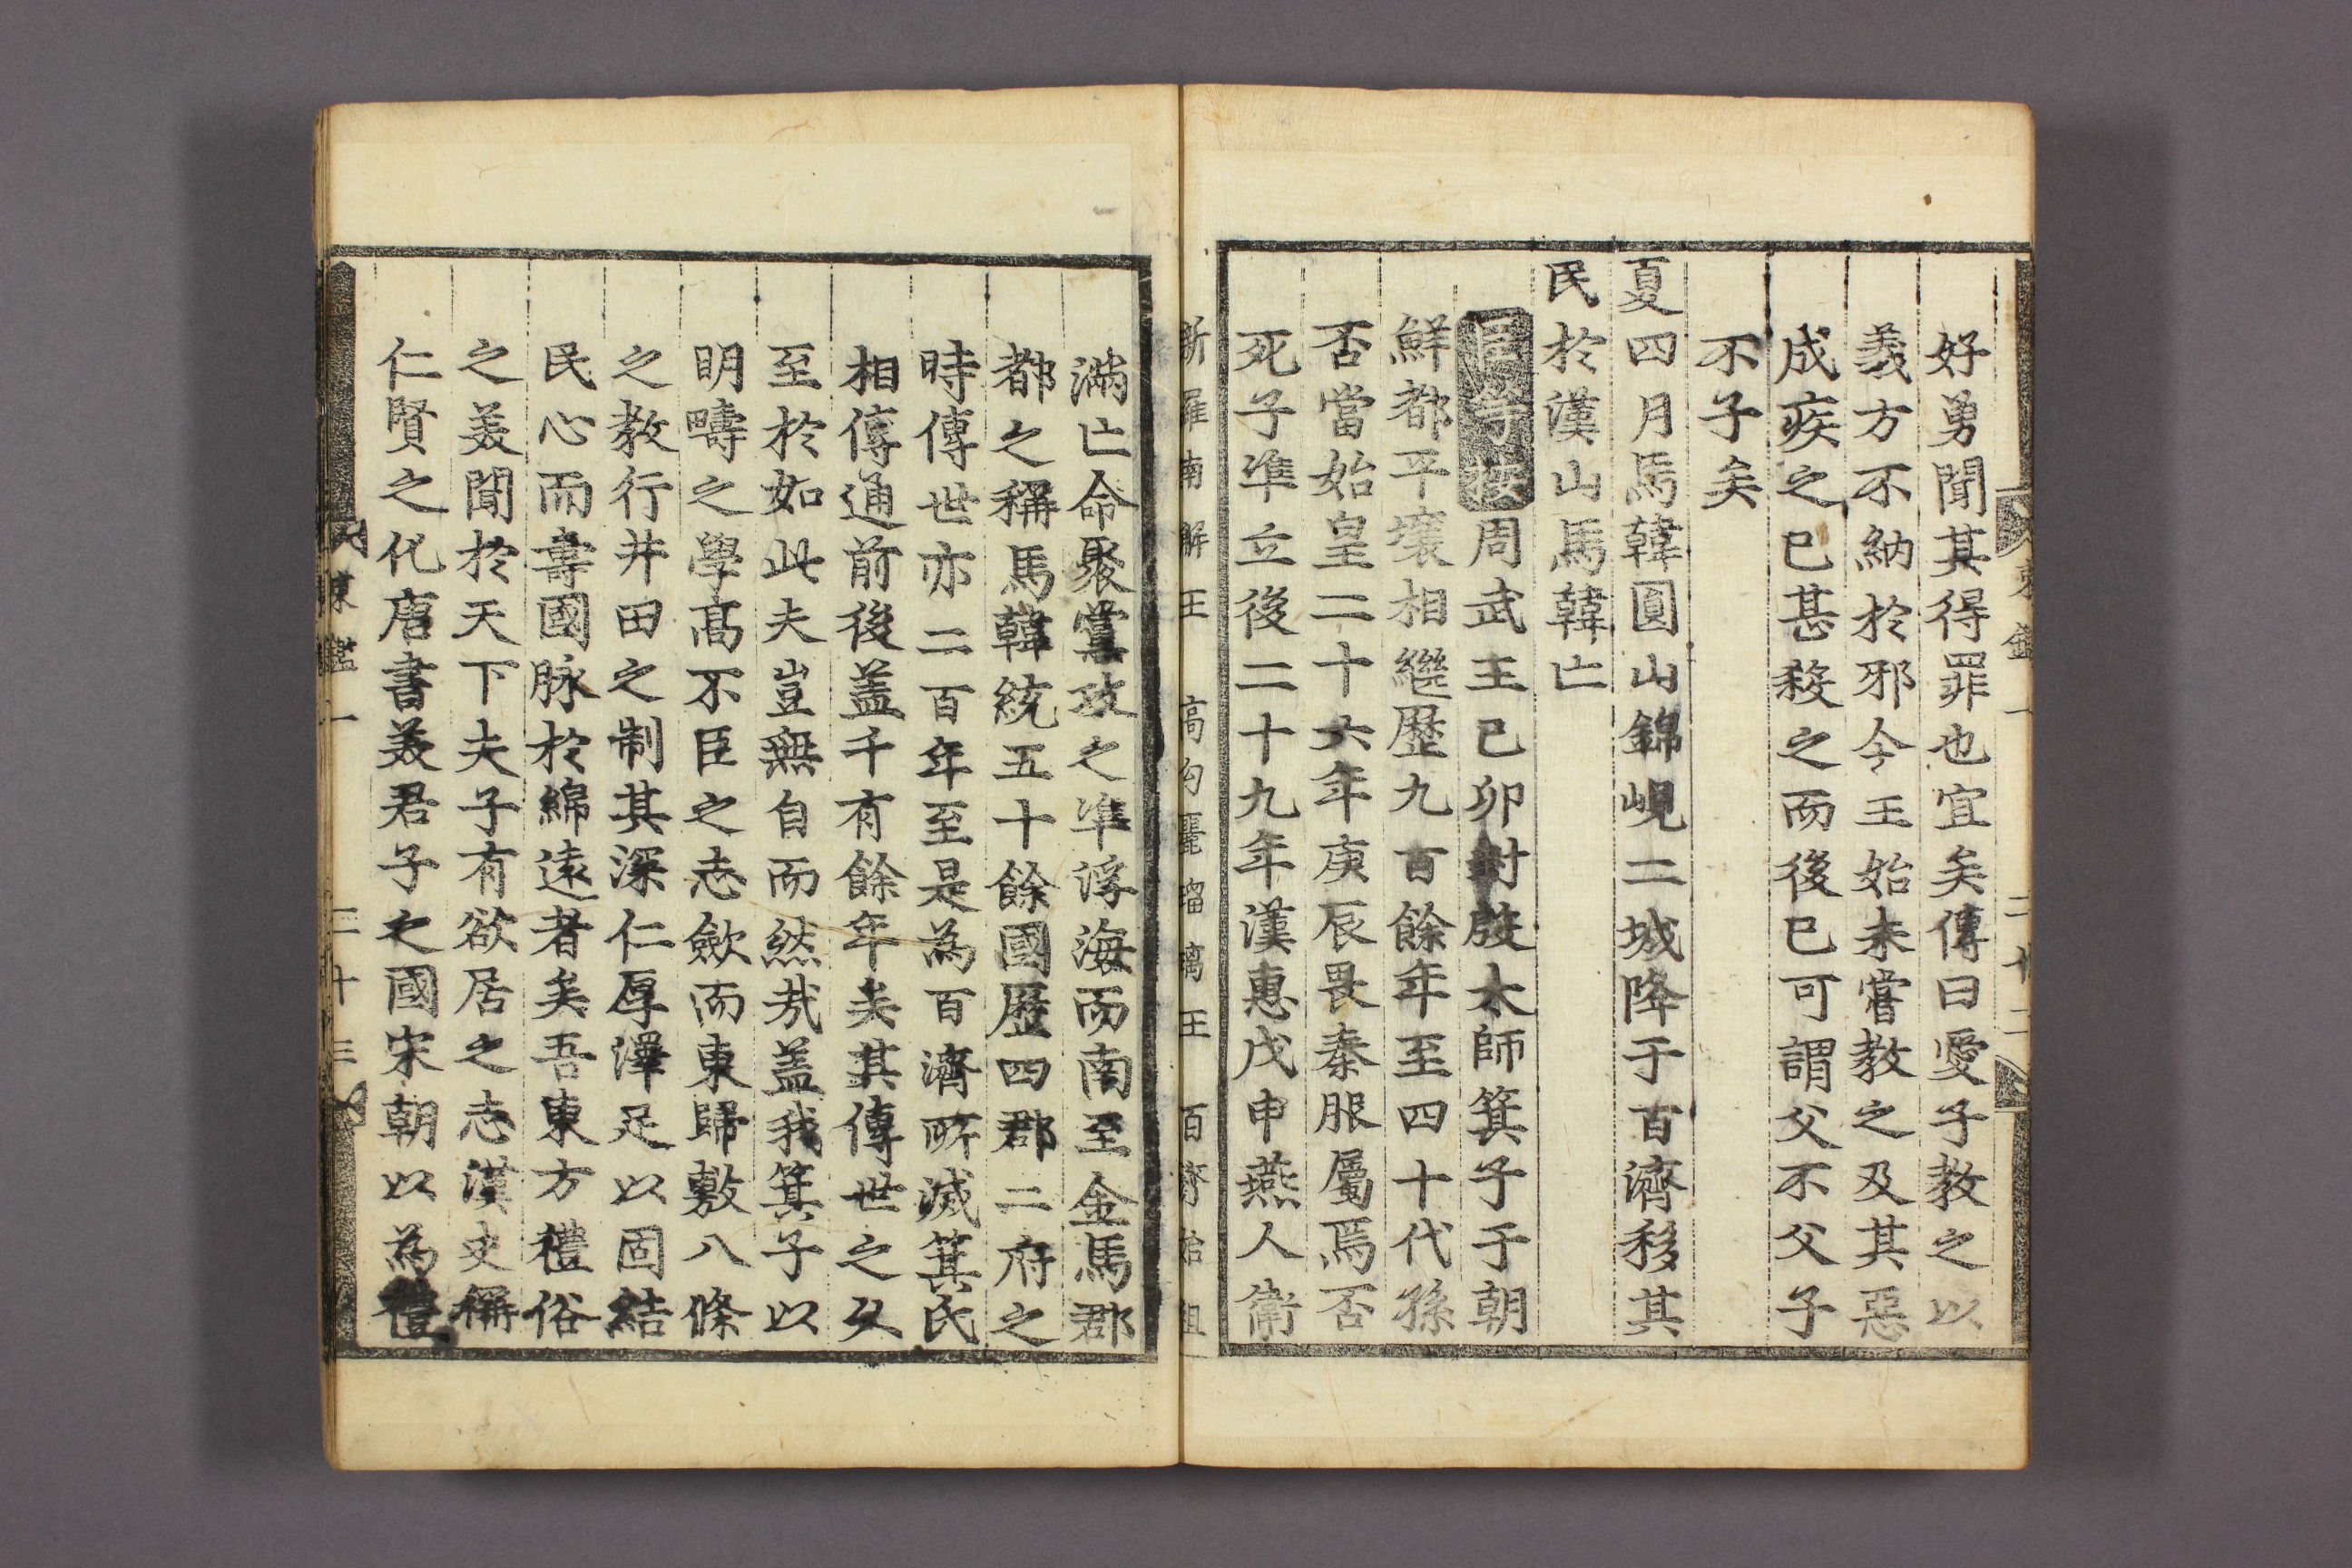 好勇聞其得罪也宜矣傳曰愛子教之以
義方不納於邪今王始未嘗教之及其惡
成疾之已甚殺之而後已可謂父不父子
不子矣
夏四月馬韓圓山錦峴二城降于百濟移其
民於漢山馬韓亡
臣等按周武王己卯封殷太師箕子于朝
鮮都平壤相繼歷九百餘年至四十代孫
否當始皇二十六年庚辰畏秦服屬焉否
死子準立後二十九年漢惠戊申燕人衛
新羅南解王 高句麗瑠璃王 百濟始祖
滿亡命聚黨攻之準浮海而南至金馬郡
都之稱馬韓統五十餘國歷四郡二府之
時傳世亦二百年至是為百濟所滅箕氏
相傳通前後蓋千有餘年矣其傳世之久
至於如此夫豈無自而然哉蓋我箕子以
明疇之學高不臣之志歛而東歸敷八條
之教行井田之制其深仁厚澤足以固結
民心而壽國脉於綿遠者矣吾東方禮俗
之美聞於天下夫子有欲居之志漢史稱
仁賢之化唐書美君子之國宋朝以為禮
東鑑一 二十三